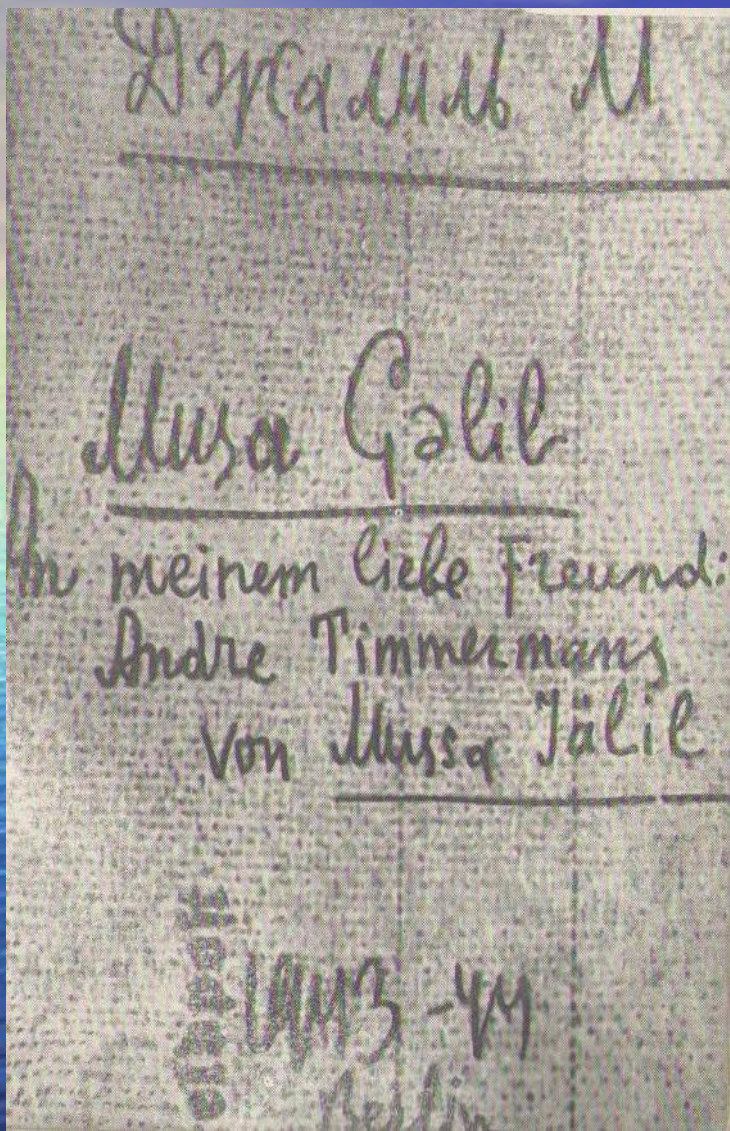 Джалиль М
Musa Çəlil
An meinem liebe Freund:
Andre Timmermans
von Mussa Jälil
1943-44
Berlin